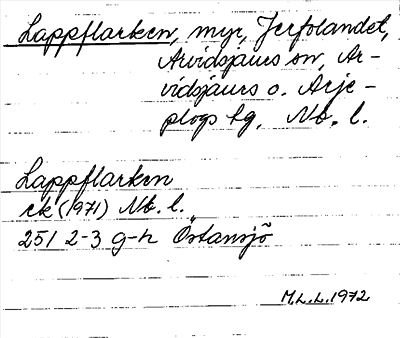 Lappflarken, myr, Jerfolandet,
Arvidsjaurs sn, Ar-
vidsjaurs o. Arje-
plogs tg, Nb. l.
Lappflarken
ek (1971) Nb. l.
251 2-3 g-h Östansjö
M.L.L. 1972